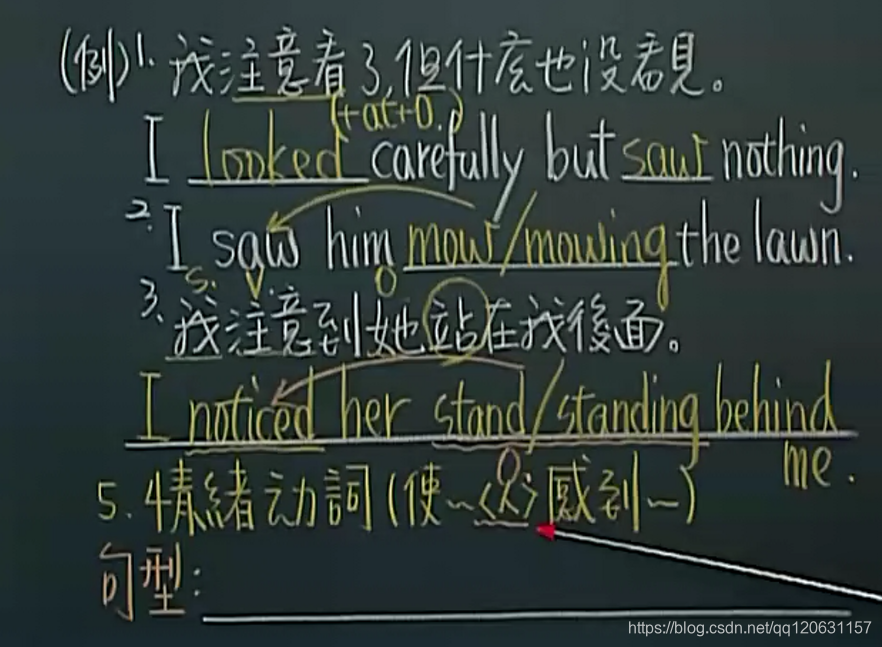 (例)1. 我注意看了,但什麼也没看見。
(+at+O.)
I looked carefully but saw nothing.
2. I saw him mow/mowing the lawn.
S. V. O
3. 我注意到她站在我後面。
I noticed her stand/standing behind
me.
O
5. 情緒动詞(使~<人>感到~)
句型:
https://blog.csdn.net/qq120631157